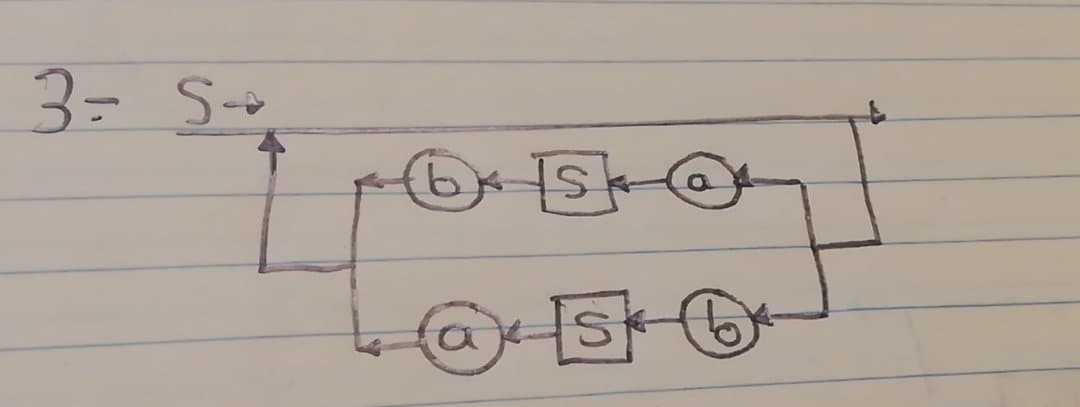 3- S→
b S a
a S b